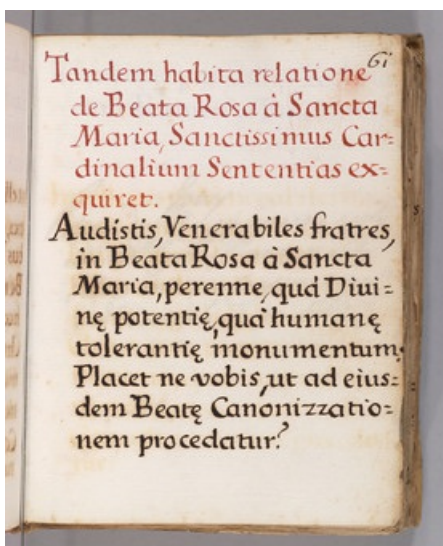 61
Tandem habita relatione
de Beata Rosa à Sancta
Maria, Sanctissimus Car=
dinalium Sententias ex=
quiret.
Audistis, Venerabiles fratres,
in Beata Rosa à Sancta
Maria, perenne, quà Diui=
nę potentię, quà humanę
tolerantię monumentum.
Placet ne vobis, ut ad eius=
dem Beatę Canonizzatio=
nem procedatur?